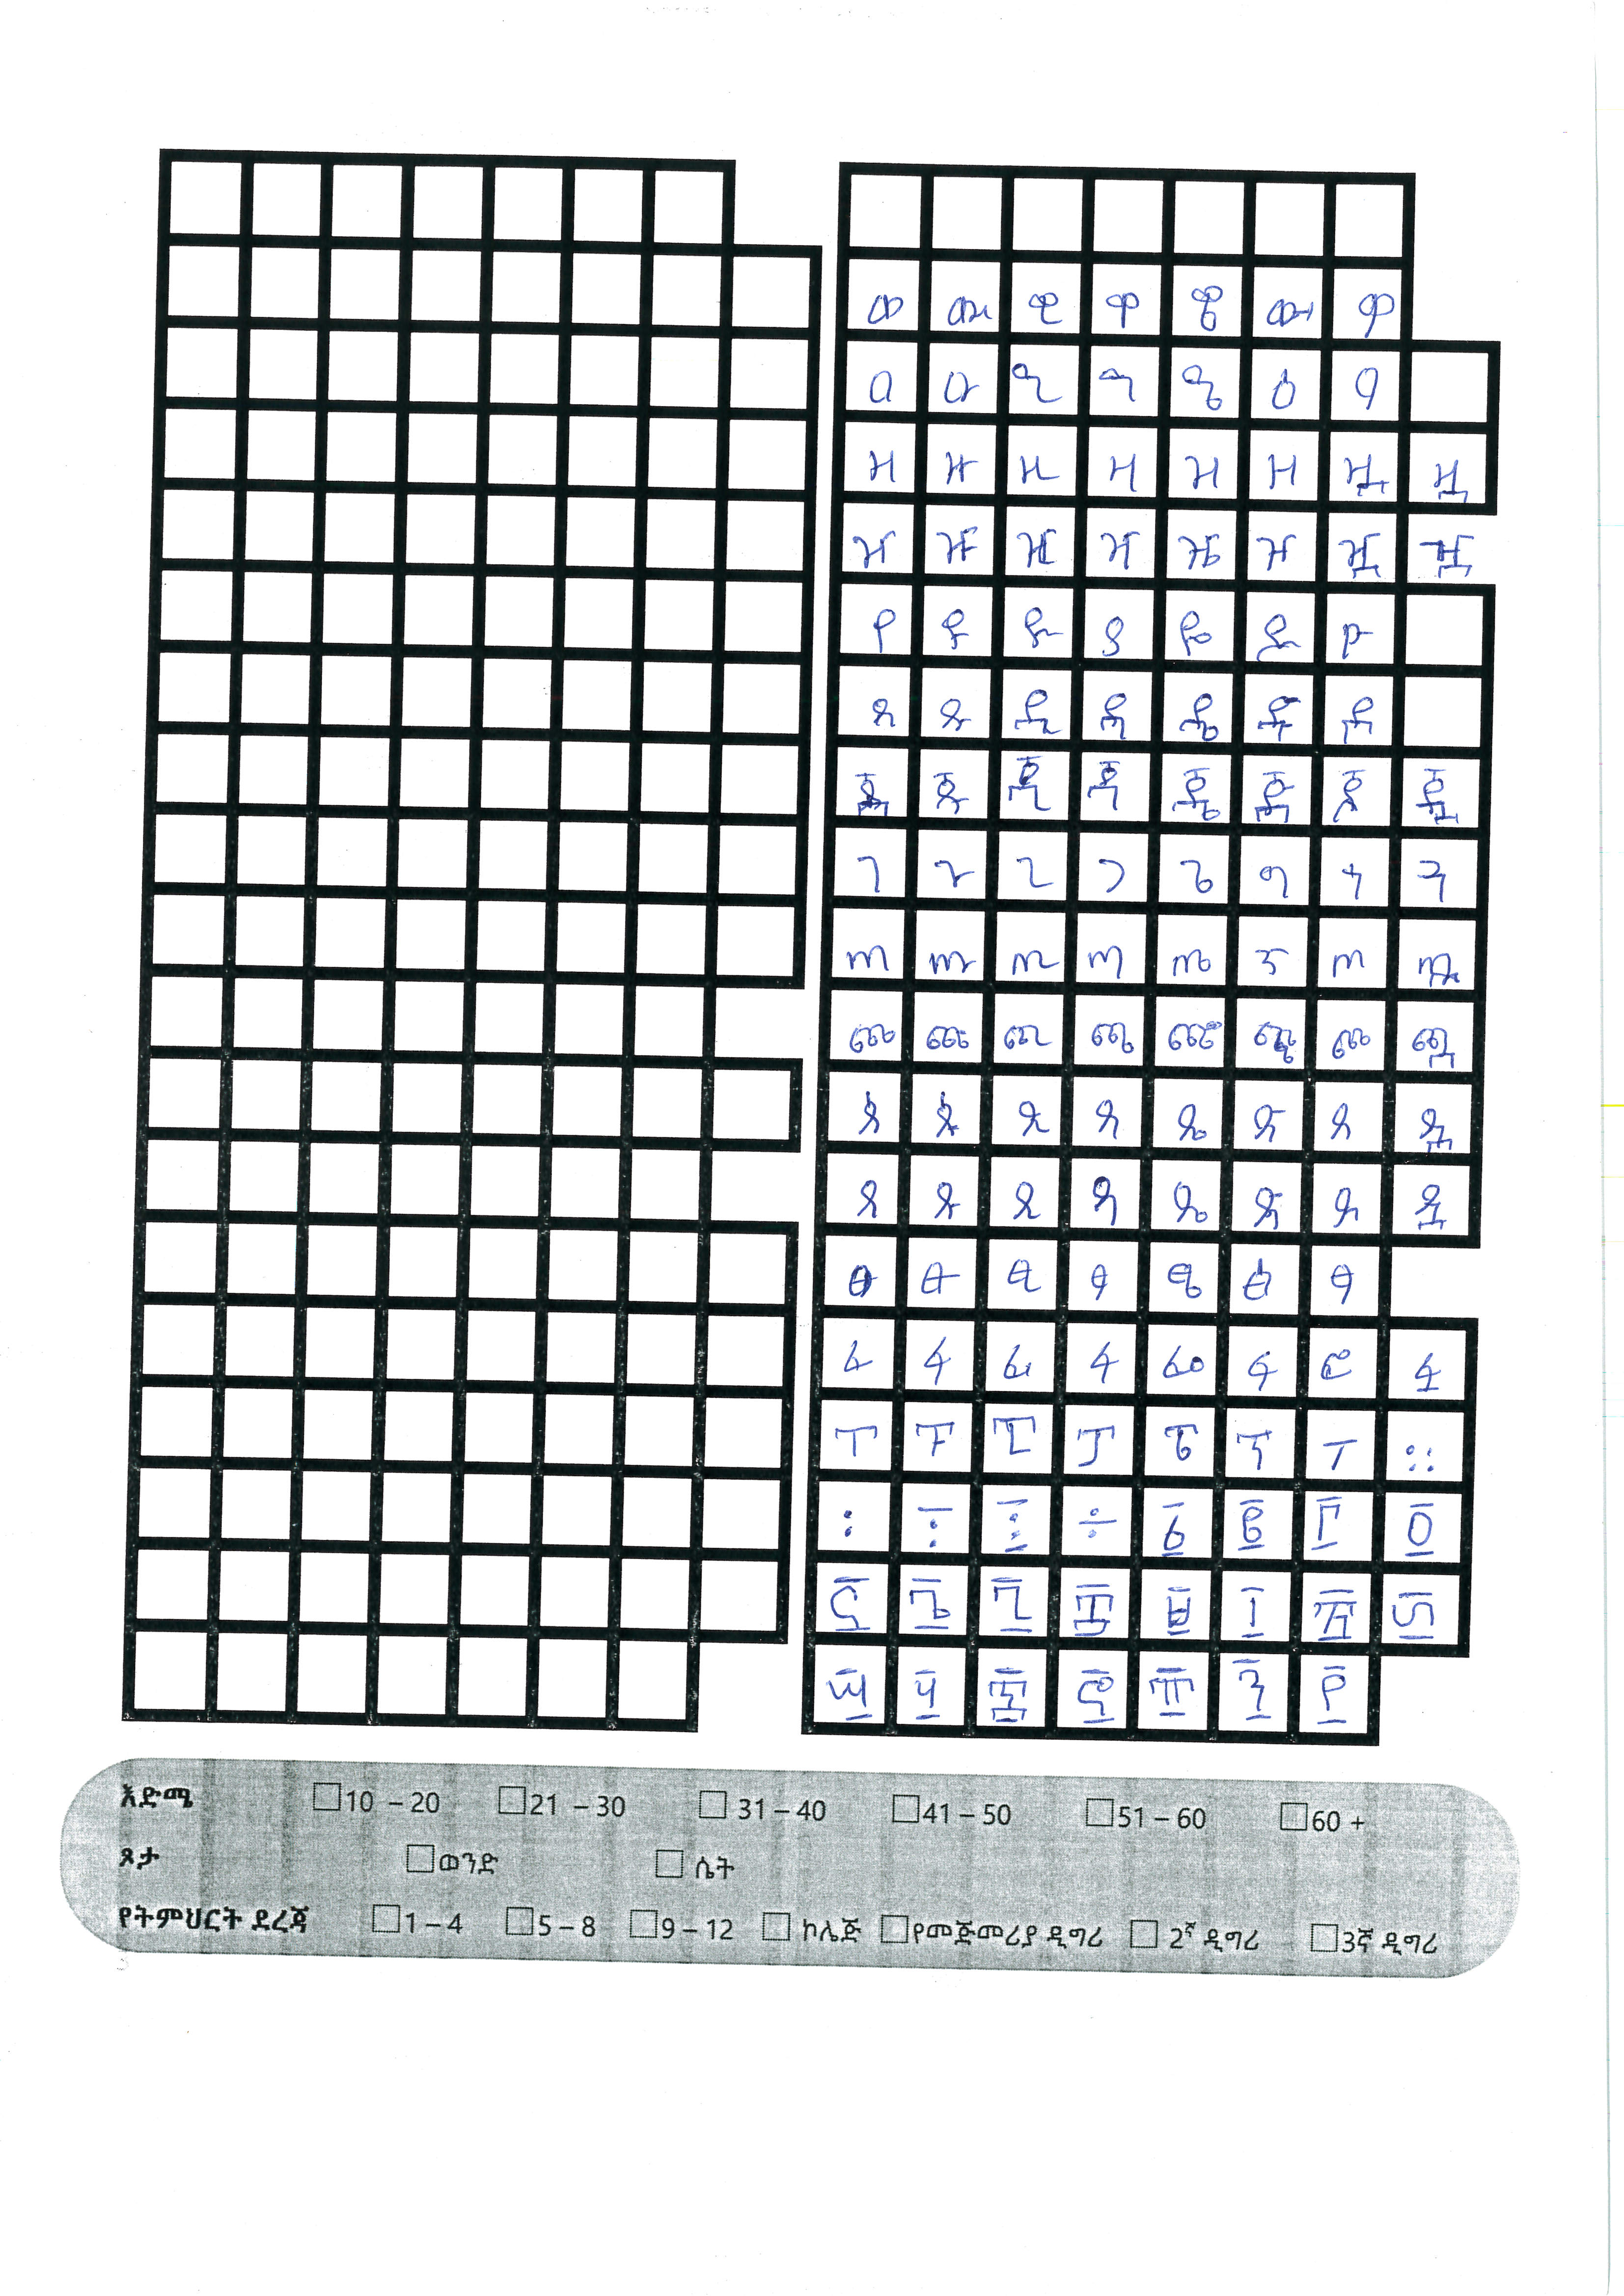 ወ ዉ ዊ ዋ ዌ ው ዎ
ዐ ዑ ዒ ዓ ዔ ዕ ዖ
ዘ ዙ ዚ ዛ ዜ ዝ ዟ ዟ
ዠ ዡ ዢ ዣ ዤ ዥ ዧ ዧ
የ ዩ ዪ ያ ዬ ይ ዮ
ደ ዱ ዲ ዳ ዴ ድ ዶ
ጀ ጁ ጂ ጃ ጄ ጅ ጆ ጇ
ገ ጉ ጊ ጋ ጌ ግ ጎ ጓ
ጠ ጡ ጢ ጣ ጤ ጥ ጦ ጧ
ጨ ጩ ጪ ጫ ጬ ጭ ጮ ጯ
ጰ ጱ ጲ ጳ ጴ ጵ ጶ ጷ
ጸ ጹ ጺ ጻ ጼ ጽ ጾ ጿ
ፀ ፁ ፂ ፃ ፄ ፅ ፆ
ፈ ፉ ፊ ፋ ፌ ፍ ፎ ፏ
ፐ ፑ ፒ ፓ ፔ ፕ ፖ ።
፡ ፣ ፤ ÷ ፩ ፪ ፫ ፬
፭ ፮ ፯ ፰ ፱ ፲ ፳ ፴
፵ ፶ ፷ ፸ ፹ ፺ ፻
እድሜ 10 – 20 21 – 30 31 – 40 41 – 50 51 – 60 60 +
ጾታ ወንድ ሴት
የትምህርት ደረጃ 1 – 4 5 – 8 9 – 12 ኮሌጅ የመጅመሪያ ዲግሪ 2ኛ ዲግሪ 3ኛ ዲግሪ